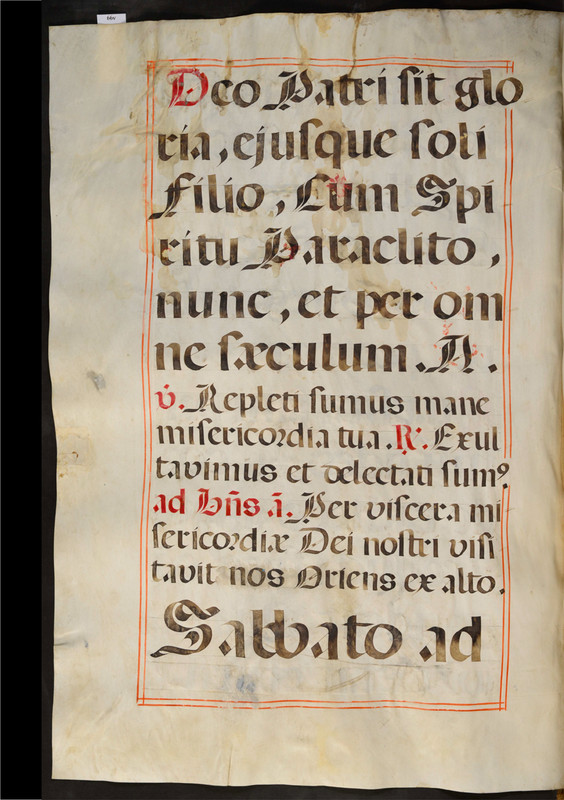 66v
Deo Patri sit glo
ria, ejusque soli
Filio, Cum Spi
ritu Paraclito,
nunc, et per om
ne sæculum. A.
v. Repleti sumus mane
misericordia tua. R. Exul
tavimus et delectati sumꝰ
ad bñs ã. Per viscera mi
sericordiæ Dei nostri visi
tavit nos Oriens ex alto.
Sabbato ad